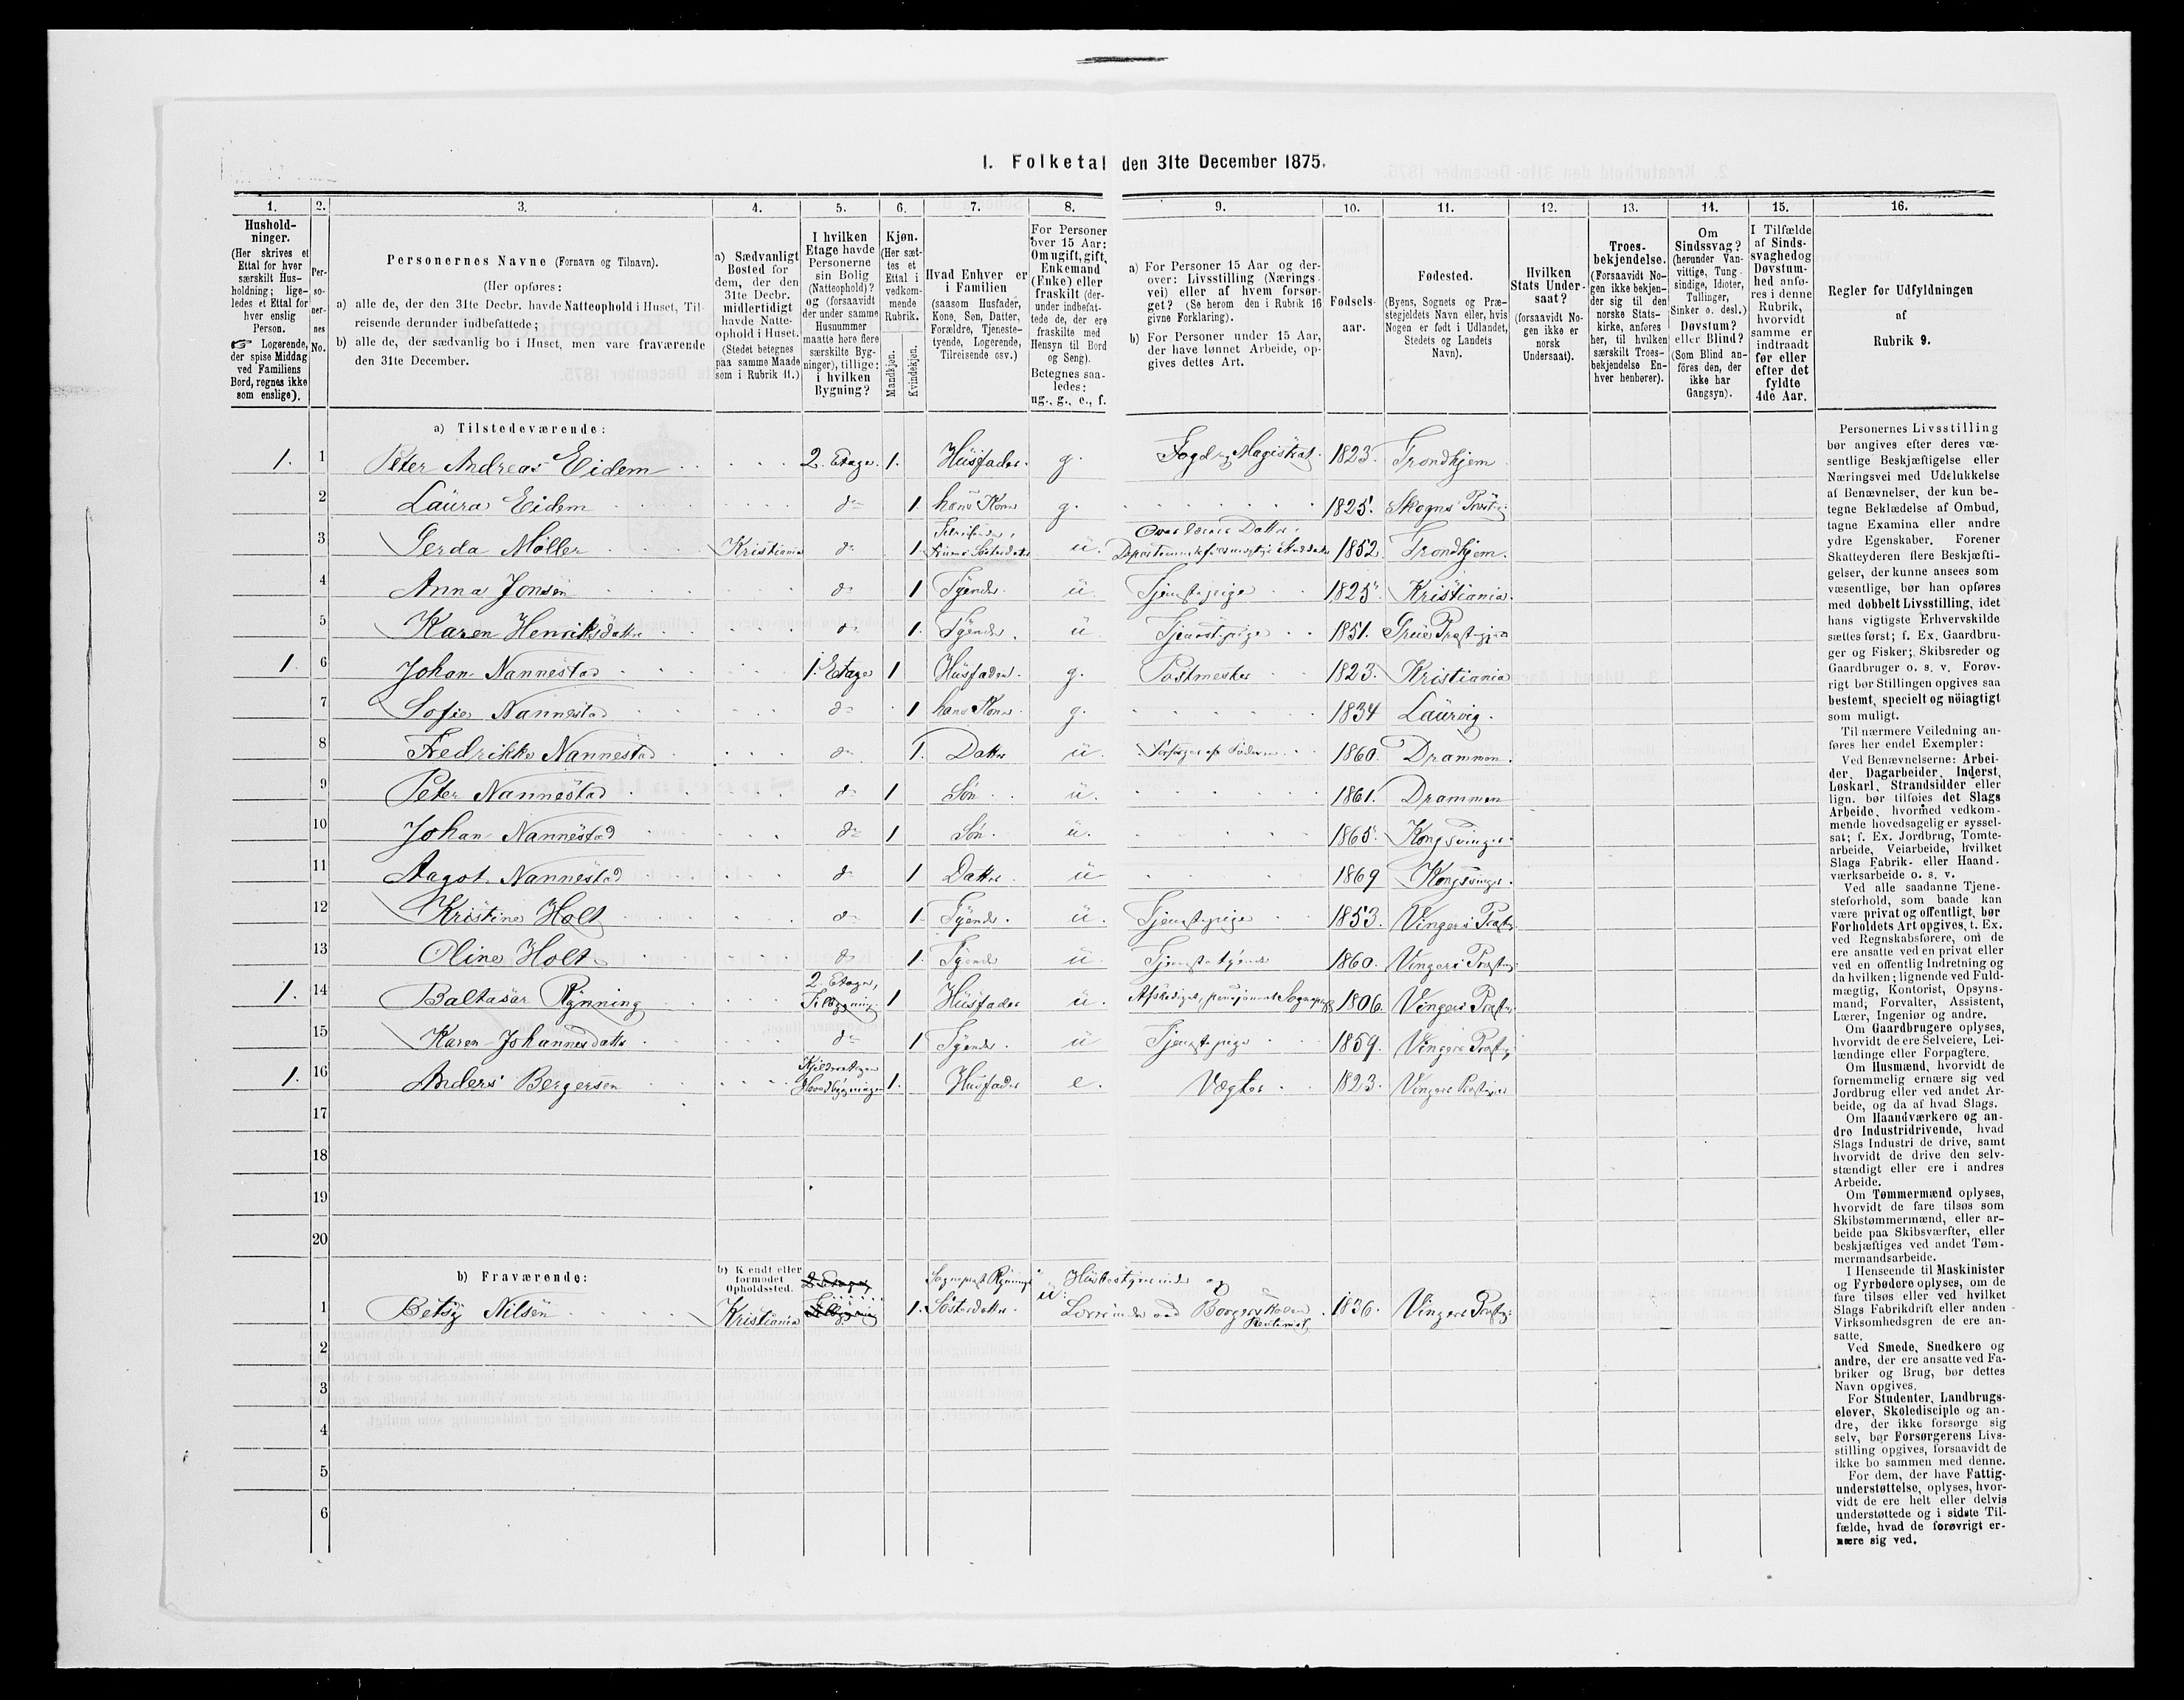 1. Folketal den 31te December 1875.
1. 2. 3. 4. 5. 6. 7. 8. 9. 10. 11. 12. 13. 14. 15. 16.
Hushold-
ninger.
(Her skrives et
Ettal for hver
særskilt Hus-
holdning; lige-
ledes et Ettal for
hver enslig
Person.
☞ Logerende,
der spise Middag
ved Familiens
Bord, regnes ikke
som enslige).
Per-
so-
ner-
nes
No.
Personernes Navne (Fornavn og Tilnavn).
(Her opføres:
a) alle de, der den 31te Decbr. havde Natteophold i Huset, Til-
reisende derunder indbefattede;
b) alle de, der sædvanlig bo i Huset, men vare fraværende
den 31te December.
a) Sædvanligt
Bosted for
dem, der den
31te Decbr.
midlertidigt
havde Natte-
ophold i Huset.
(Stedet betegnes
paa samme Maade
som i Rubrik 11.)
I hvilken
Etage havde
Personerne
sin Bolig
(Natteophold)?
og (forsaavidt
der under samme
Husnummer
maatte høre flere
særskilte Byg-
ninger), tillige:
i hvilken
Bygning?
Kjøn.
(Her sæt-
tes et
Ettal i
vedkom-
mende
Rubrik.
Mandkjøn.
Kvindekjøn.
Hvad Enhver er
i Familien
(saasom Husfader,
Kone, Søn, Datter,
Forældre, Tjeneste-
tyende, Logerende,
Tilreisende osv.)
For Personer
over 15 Aar:
Om ugift, gift,
Enkemand
(Enke) eller
fraskilt (der-
under indbefat-
tede de, der ere
fraskilte med
Hensyn til Bord
og Seng).
Betegnes saa-
ledes:
ug., g., e., f.
a) For Personer 15 Aar og der-
over: Livsstilling (Nærings-
vei) eller af hvem forsør-
get? (Se herom den i Rubrik 16
givne Forklaring).
b) For Personer under 15 Aar,
der have lønnet Arbeide, op-
gives dettes Art.
Fødsels-
aar.
Fødested.
(Byens, Sognets og Præ-
stegjeldets Navn eller, hvis
Nogen er født i Udlandet,
Stedets og Landets
Navn).
Hvilken
Stats Under-
saat?
(forsaavidt No-
gen ikke er
norsk
Undersaat).
Troes-
bekjendelse.
(Forsaavidt No-
gen ikke bekjen-
der sig til den
norske Stats-
kirke, anføres
her, til hvilken
særskilt Troes-
bekjendelse En-
hver henhører).
Om
Sindssvag?
(herunder Van-
vittige, Tung-
sindige, Idioter,
Tullinger,
Sinker o. desl.)
Døvstum?
eller Blind?
(Som Blind an-
føres den, der
ikke har
Gangsyn).
I Tilfælde
af Sinds-
svaghed og
Døvstum-
hed anfø-
res i denne
Rubrik,
hvorvidt
samme er
indtraadt
før eller
efter det
fyldte
4de Aar.
Regler for Udfyldningen
af
Rubrik 9.
a) Tilstedeværende:
1. 1 Peter Andreas Eidem 2. Etage. 1. Husfader. g. Fogd og Magistrat. 1823. Trondhjem
2 Laura Eidem do 1 hans Kone g. 1825. Skogns Præstg.
3 Gerda Møller Kristiania do 1. Søsterdatter u. Datter 1852. Trondhjem.
4 Anna Jonsen do 1 Tyende. u. Tjenstepige 1825. Kristiania.
5 Karen Henriksdatter do 1. Tyende. u. Tjenstepige 1851. Grue Præstegjeld
1. 6 Johan Nannestad 1. Etage 1 Husfader. g. Postmester 1823. Kristiania
7 Sofie Nannestad do 1 hans Kone. g. 1834 Laurvig.
8 Fredrikke Nannestad do 1. Datter u. Forsørges af Faderen 1860. Drammen.
9 Peter Nannestad do 1 Søn u. 1861. Drammen
10 Johan Nannestad do 1 Søn. u. 1865. Kongsvinger.
11 Aagot Nannestad do 1 Datter u 1869 Kongsvinger.
12 Kristine Holt do 1. Tyende. u. Tjenstepige 1853. Vingers Præstg.
13 Oline Holt do 1. Tyende u. Tjenstetyende 1860. Vingers Præstg.
1. 14 Baltasar Rynning 2. Etage, Tilbygning. 1 Husfader u. Afskediget, pensioneret Sognepræst 1806. Vingers Præstg.
15 Karen Johannesdatter do 1 Tyende. u Tjenstepige 1859. Vingers Præstg.
1. 16 Anders Bergersen Kjelderetagen Hovedbygningen 1. Husfader e. Vægter 1823. Vingers Præstegjeld
17
18
19
20
b) Fraværende:
b) Kendt eller
formodet
Opholdssted.
1 Betsy Nilsen Kristiania 2. Etage Tilbygning 1. Sognepræst Rynnings Søsterdatter. u. Husbestyrerinde og Lærerinde ved Borgerskolen 1836. Vingers Præstg.
2
3
4
5
6
Personernes Livsstilling
bør angives efter deres væ-
sentlige Beskjæftigelse eller
Næringsvei med Udelukkelse
af Benævnelser, der kun be-
tegne Beklædelse af Ombud,
tagne Examina eller andre
ydre Egenskaber. Forener
Skatteyderen flere Beskjæfti-
gelser, der kunne ansees som
væsentlige, bør han opføres
med dobbelt Livsstilling, idet
hans vigtigste Erhvervskilde
sættes først; f. Ex. Gaardbru-
ger og Fisker; Skibsreder og
Gaardbruger o. s. v. Forøv-
rigt bør Stillingen opgives saa
bestemt, specielt og nöiagtigt
som muligt.
Til nærmere Veiledning an-
føres her endel Exempler:
Ved Benævnelserne: Arbei-
der, Dagarbeider, Inderst,
Løskarl, Strandsidder eller
lign. bør tilføies det Slags
Arbeide, hvormed vedkom-
mende hovedsagelig er syssel-
sat; f. Ex. Jordbrug, Tomte-
arbeide, Veiarbeide, hvilket
Slags Fabrik- eller Haand-
værksarbeide o. s. v.
Ved alle saadanne Tjene-
steforhold, som baade kan
være privat og offentligt, bør
Forholdets Art opgives, t. Ex.
ved Regnskabsførere, om de
ere ansatte ved en privat eller
ved en offentlig Indretning og
da hvilken; lignende ved Fuld-
mægtig, Kontorist, Opsyns-
mand, Forvalter, Assistent,
Lærer, Ingeniør og andre.
Om Gaardbrugere oplyses,
hvorvidt de ere Selveiere, Lei-
lændinge eller Forpagtere.
Om Husmænd, hvorvidt de
fornemmelig ernære sig ved
Jordbrug eller ved andet Ar-
beide, og da af hvad Slags.
Om Haandværkere og an-
dre Industridrivende, hvad
Slags Industri de drive, samt
hvorvidt de drive den selv-
stændigt eller ere i andres
Arbeide.
Om Tømmermænd oplyses,
hvorvidt de fare tilsøs som
Skibstømmermænd, eller ar-
beide paa Skibsværfter, eller
beskjæftiges ved andet Tøm-
mermandsarbeide.
I Henseende til Maskinister
og Fyrbødere oplyses, om de
fare tilsøs eller ved hvilket
Slags Fabrikdrift eller anden
Virksomhedsgren de ere an-
satte.
Ved Smede, Snedkere og
andre, der ere ansatte ved Fa-
briker og Brug, bør dettes
Navn opgives.
For Studenter, Landbrugs-
elever, Skoledisciple og an-
dre, der ikke forsørge sig
selv, bør Forsørgerens Livs-
stilling opgives, forsaavidt de
ikke bo sammen med denne.
For dem, der have Fattig-
understøttelse, oplyses, hvor-
vidt de ere helt eller delvis
understøttede og i sidste Til-
fælde, hvad de forøvrigt er-
nære sig ved.